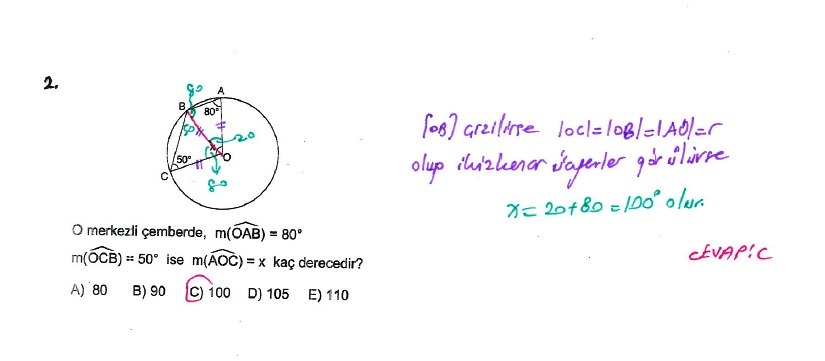 2.
80
A
B
80°
50
20
x
50°
O
C
80
[OB] çizilirse |OC|=|OB|=|AO|=r
olup ikizkenar üçgenler görülürse
x = 20+80 = 100° olur.
CEVAP: C
O merkezli çemberde, m(OAB) = 80°
m(OCB) = 50° ise m(AOC) = x kaç derecedir?
A) 80 B) 90 C) 100 D) 105 E) 110